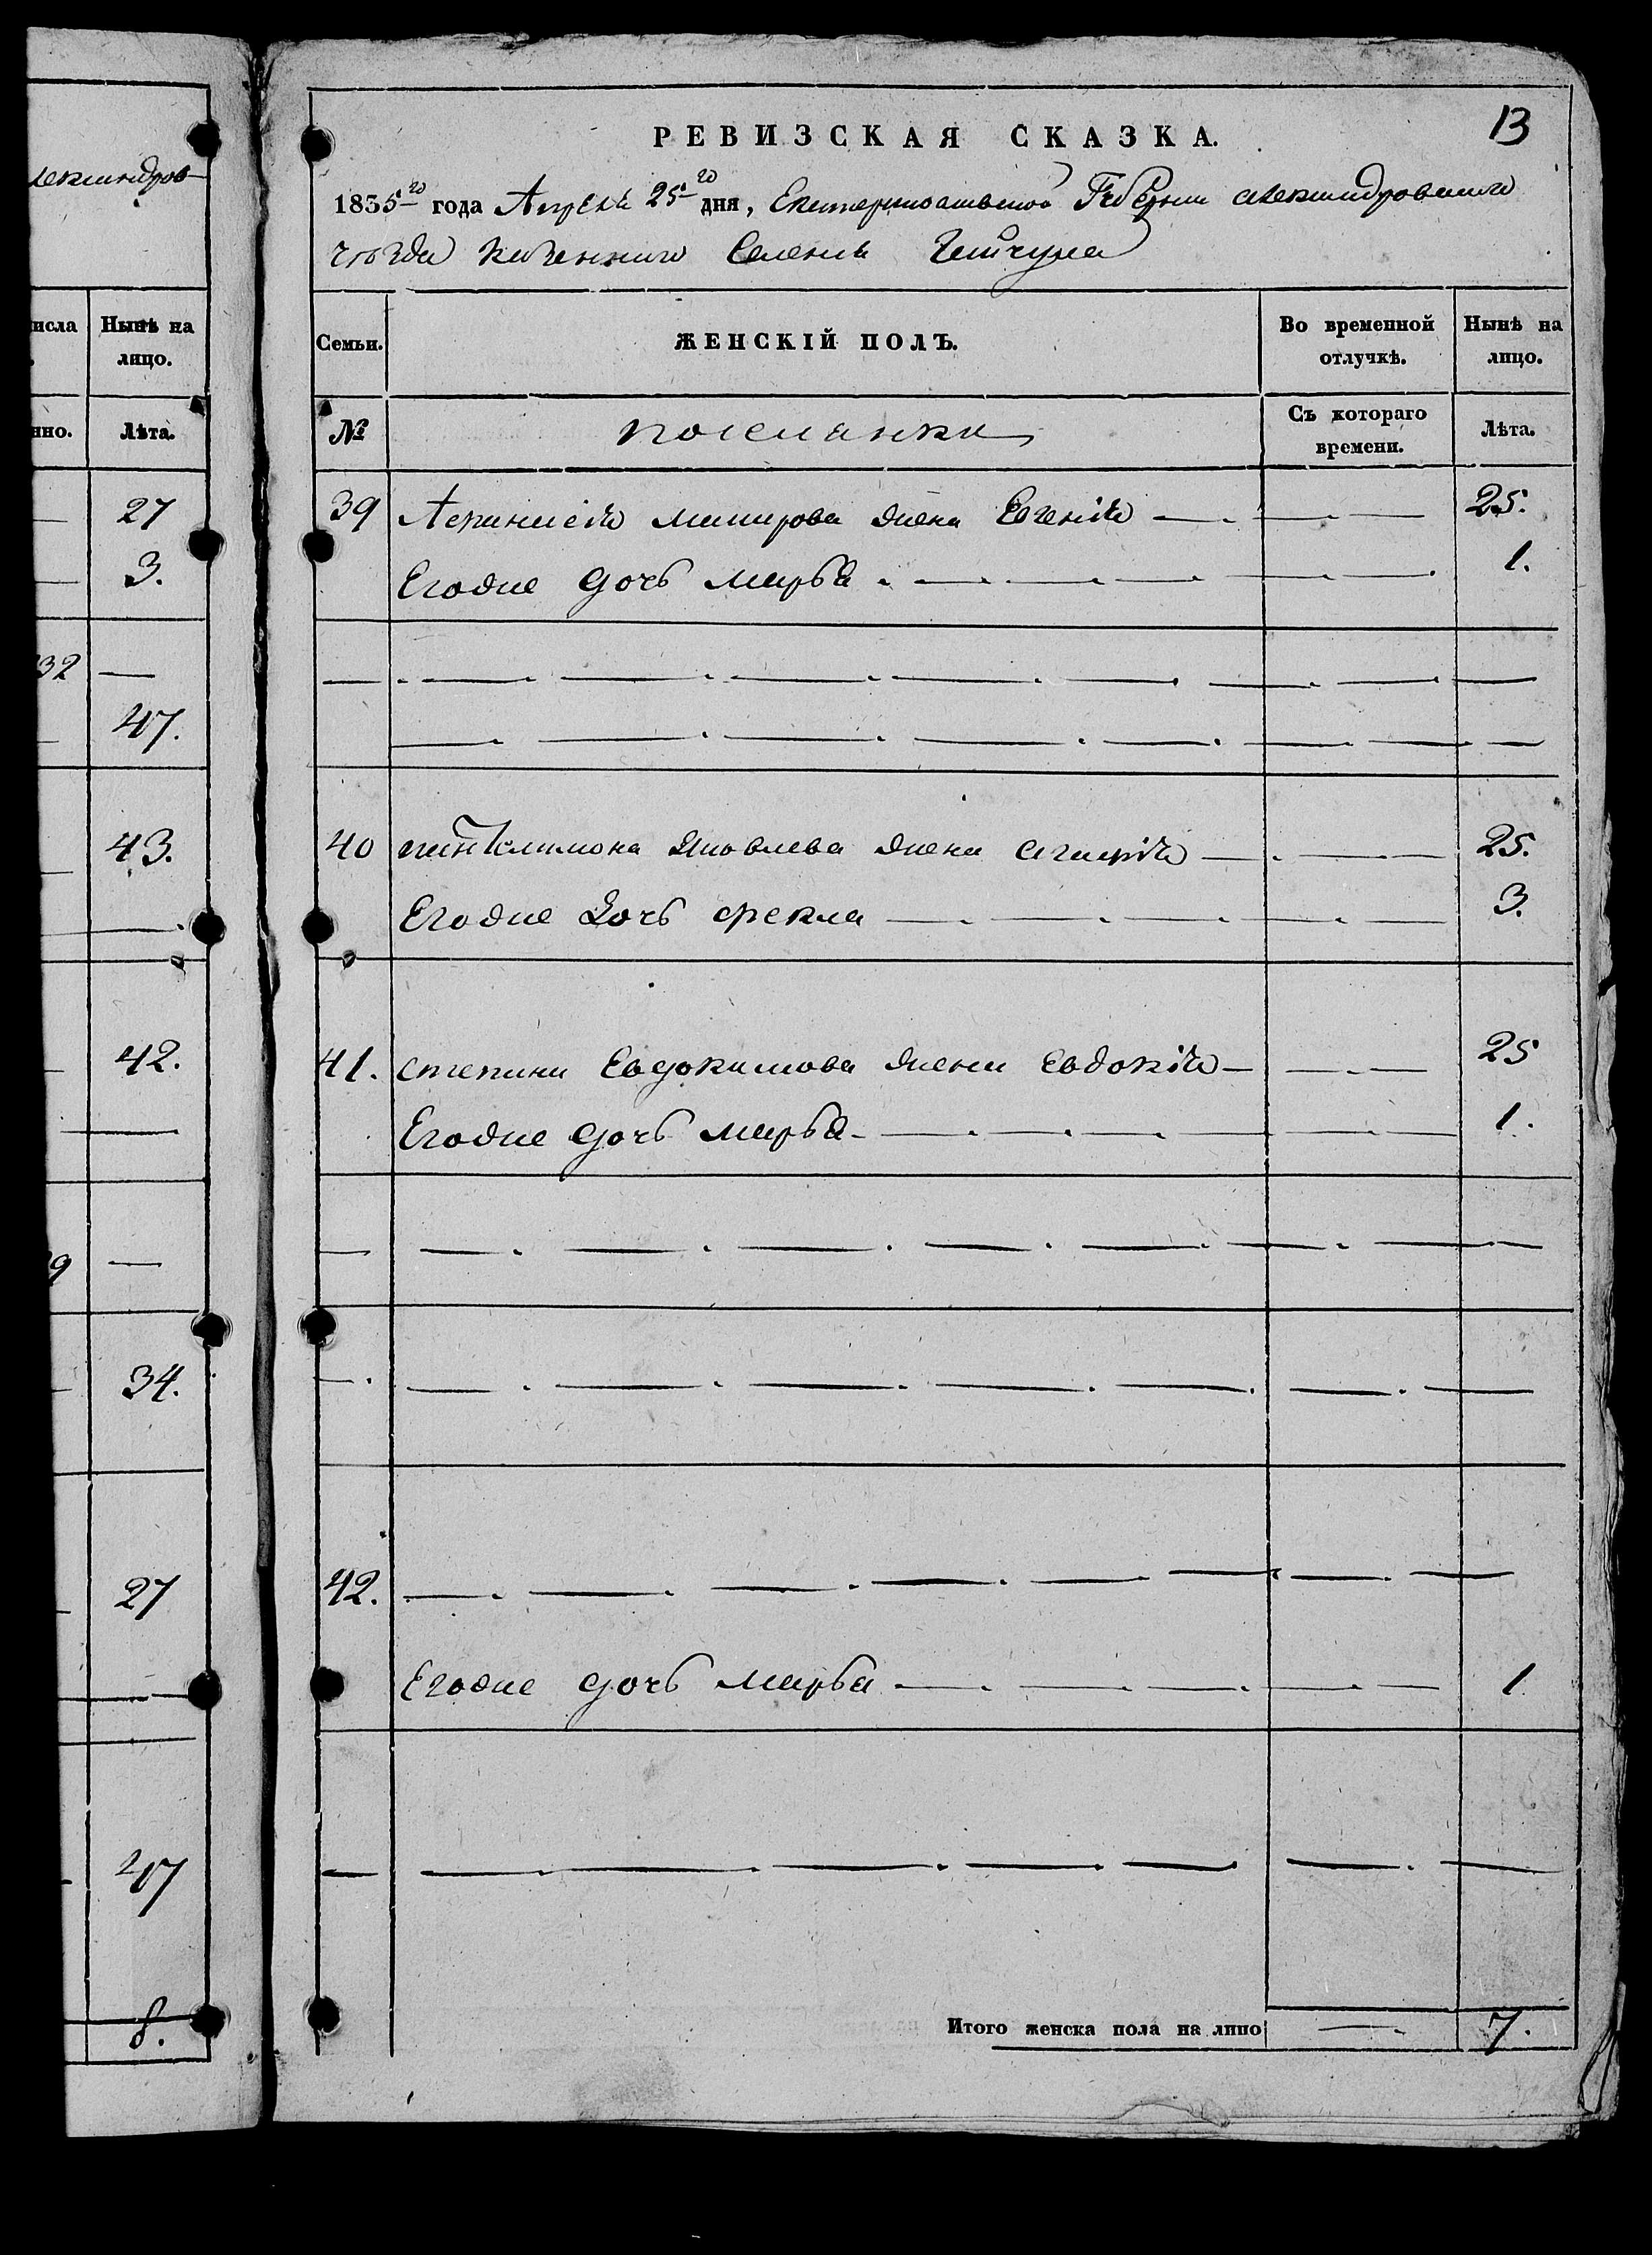 лександров-
исла Нынѣ на
лицо.
нно. Лѣта.
27
3.
32 —
47.
43.
42.
9 —
34.
27
47
8.
13
РЕВИЗСКАЯ СКАЗКА.
1835го года Апреля 25го дня, Екатеринославской Губернии Александровского
уѣзда казенного Селения
Семьи. ЖЕНСКІЙ ПОЛЪ. Во временной отлучкѣ. Нынѣ на лицо.
№ поселянки Съ котораго времени. Лѣта.
39 жена Евгенія 25.
Егоже дочь Марья 1.
40 пантелимона Яковлева жена 25.
Егоже Дочь фекла 3.
41. степана Евдокимова жена Евдокія 25
Егоже дочь Марья 1.
42.
Егоже дочь Марья 1
Итого женска пола на лицо — 7.